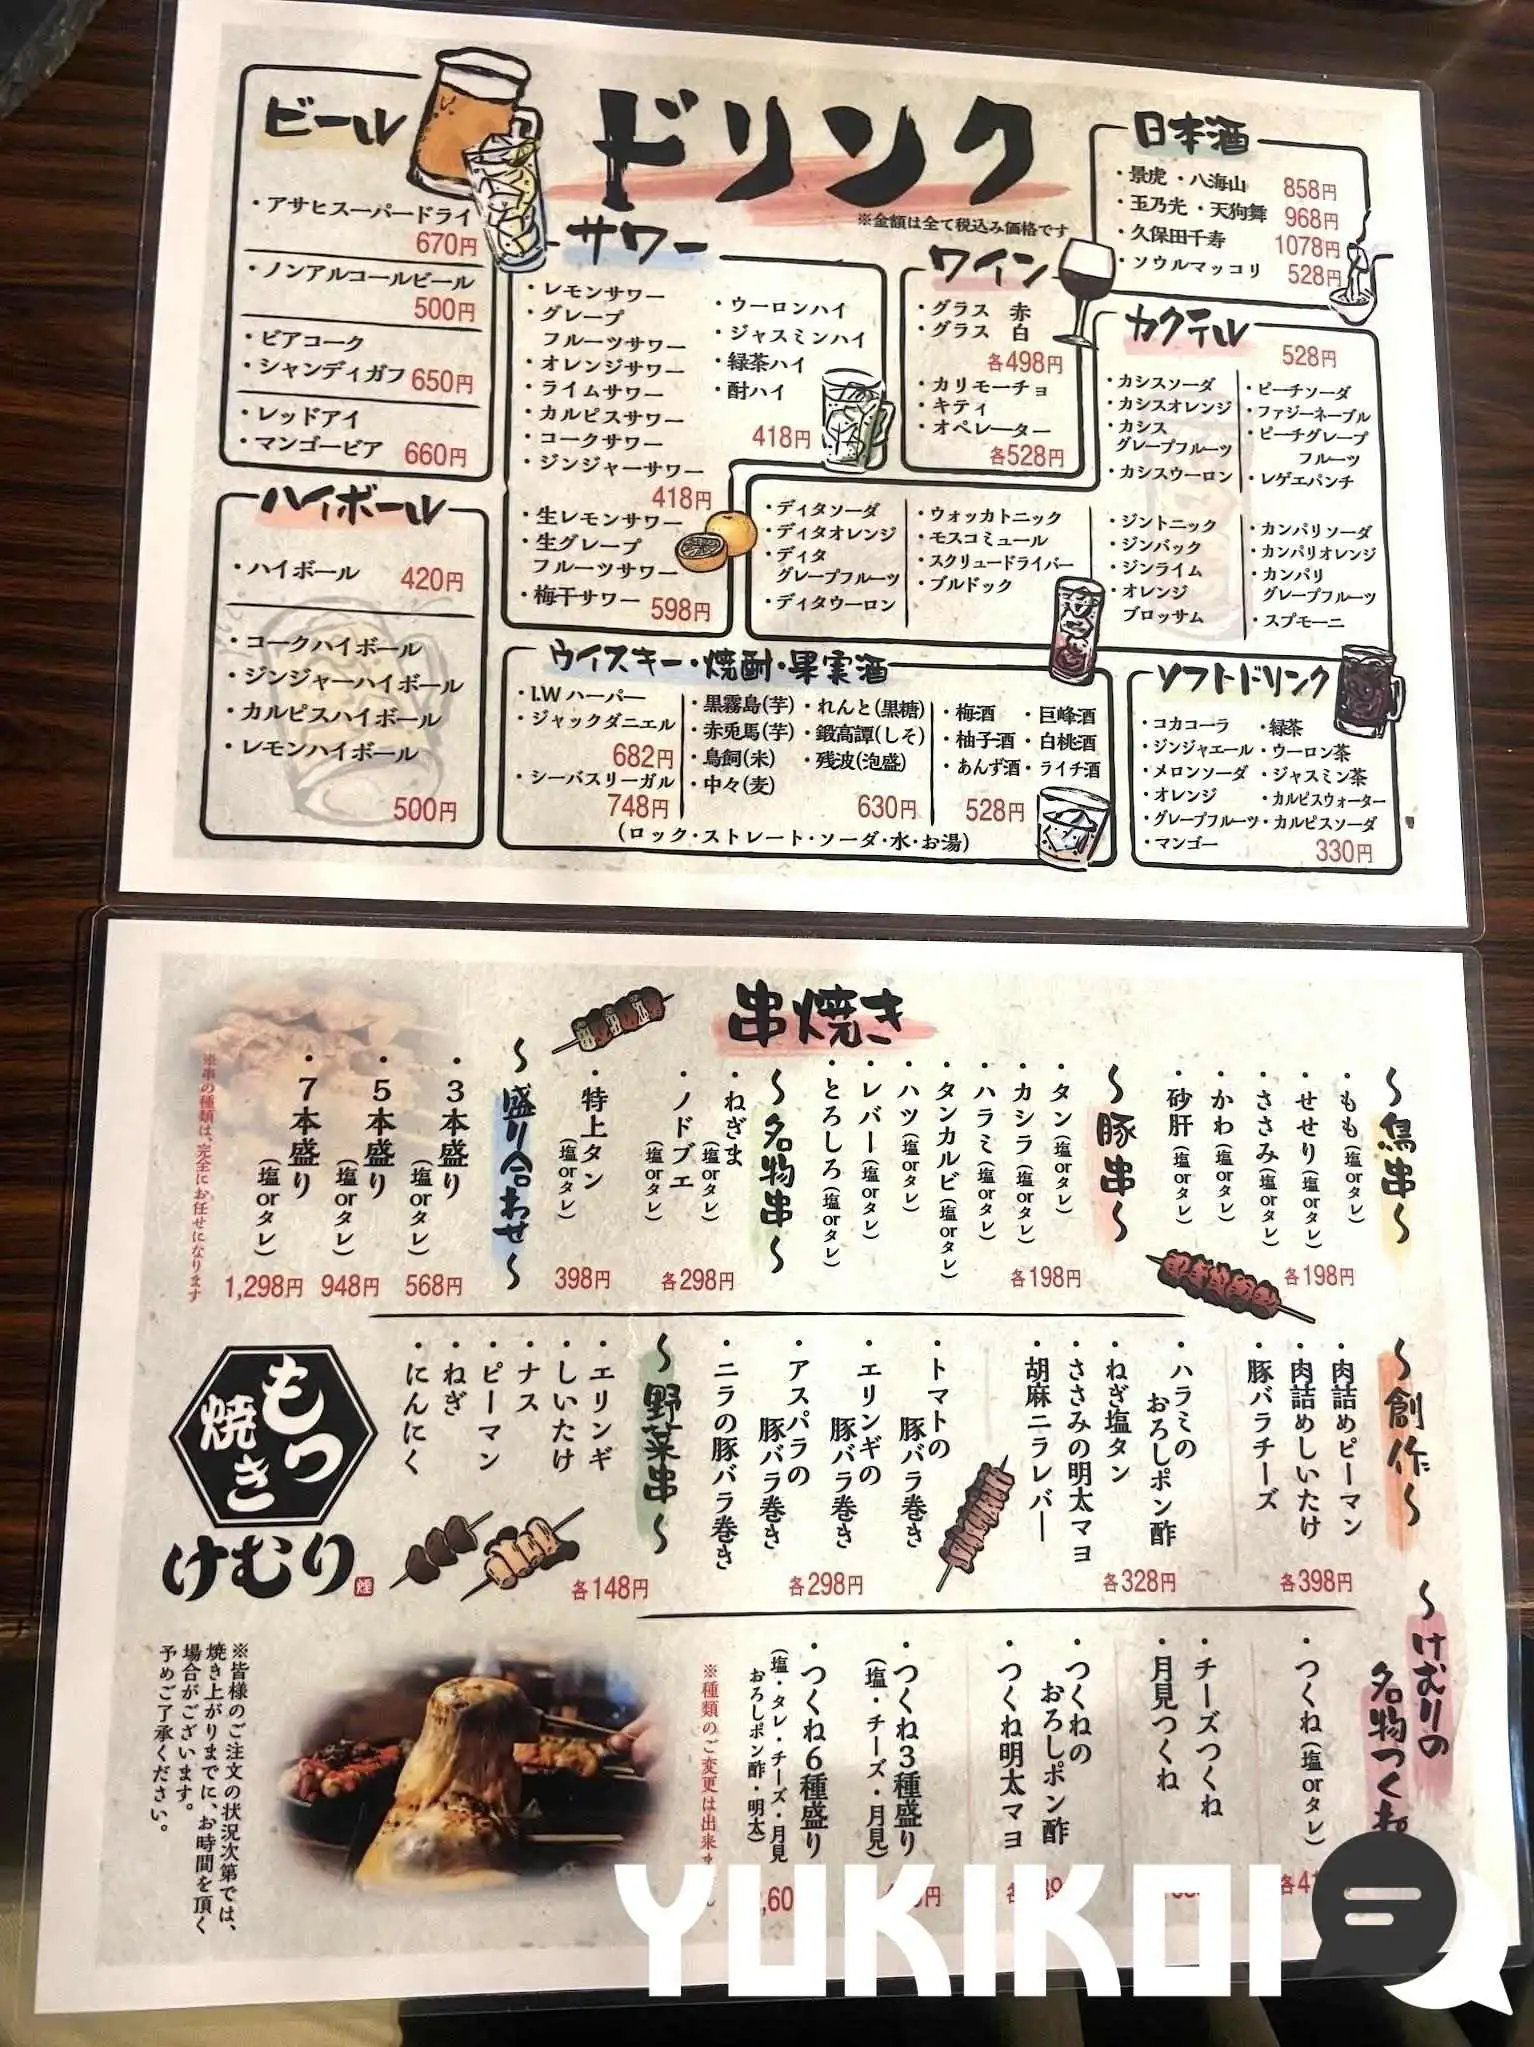 ドリンク
※金額は全て税込み価格です
ビール
・アサヒスーパードライ
670円
・ノンアルコールビール
500円
・ビアコーク
・シャンディガフ 650円
・レッドアイ
・マンゴービア 660円
ハイボール
・ハイボール 420円
・コークハイボール
・ジンジャーハイボール
・カルピスハイボール
・レモンハイボール
500円
サワー
・レモンサワー
・グレープ
フルーツサワー
・オレンジサワー
・ライムサワー
・カルピスサワー
・コークサワー
・ジンジャーサワー
418円
・生レモンサワー
・生グレープ
フルーツサワー
・梅干サワー 598円
・ウーロンハイ
・ジャスミンハイ
・緑茶ハイ
・酎ハイ
418円
ワイン
・グラス 赤
・グラス 白
各498円
・カリモーチョ
・キティ
・オペレーター
各528円
日本酒
・景虎・八海山 858円
・玉乃光・天狗舞 968円
・久保田千寿 1078円
・ソウルマッコリ 528円
カクテル
528円
・カシスソーダ
・カシスオレンジ
・カシス
グレープフルーツ
・カシスウーロン
・ピーチソーダ
・ファジーネーブル
・ピーチグレープ
フルーツ
・レゲエパンチ
・ディタソーダ
・ディタオレンジ
・ディタ
グレープフルーツ
・ディタウーロン
・ウォッカトニック
・モスコミュール
・スクリュードライバー
・ブルドック
・ジントニック
・ジンバック
・ジンライム
・オレンジ
ブロッサム
・カンパリソーダ
・カンパリオレンジ
・カンパリ
グレープフルーツ
・スプモーニ
ウイスキー・焼酎・果実酒
・I.W ハーパー
・ジャックダニエル
682円
・シーバスリーガル
748円
・黒霧島(芋)
・赤兎馬(芋)
・鳥飼(米)
・中々(麦)
・れんと(黒糖)
・鍛高譚(しそ)
・残波(泡盛)
630円
・梅酒
・柚子酒
・あんず酒
・巨峰酒
・白桃酒
・ライチ酒
528円
(ロック・ストレート・ソーダ・水・お湯)
ソフトドリンク
・コカコーラ
・ジンジャエール
・メロンソーダ
・オレンジ
・グレープフルーツ
・マンゴー
・緑茶
・ウーロン茶
・ジャスミン茶
・カルピスウォーター
・カルピスソーダ
330円
串焼き
〜鳥串〜
・もも(塩orタレ)
・せせり(塩orタレ)
・ささみ(塩orタレ)
・かわ(塩orタレ)
・砂肝(塩orタレ)
各198円
〜豚串〜
・タン(塩orタレ)
・カシラ(塩orタレ)
・ハラミ(塩orタレ)
・タンカルビ(塩orタレ)
・ハツ(塩orタレ)
・レバー(塩orタレ)
・とろしろ(塩orタレ)
各198円
〜名物串〜
・ねぎま
(塩orタレ)
・ノドブエ
(塩orタレ)
各298円
・特上タン
(塩orタレ)
398円
〜盛り合わせ〜
・3本盛り
(塩orタレ)
568円
・5本盛り
(塩orタレ)
948円
・7本盛り
(塩orタレ)
1,298円
※串の種類は、完全にお任せになります
〜創作〜
・肉詰めピーマン
・肉詰めしいたけ
・豚バラチーズ
各398円
・ハラミの
おろしポン酢
・ねぎ塩タン
・ささみの明太マヨ
・胡麻ニラレバー
各328円
・トマトの
豚バラ巻き
・エリンギの
豚バラ巻き
・アスパラの
豚バラ巻き
・ニラの豚バラ巻き
各298円
〜野菜串〜
・エリンギ
・しいたけ
・ナス
・ピーマン
・ねぎ
・にんにく
各148円
もつ
焼き
けむり
煙
〜けむりの
名物つく
・つくね(塩orタレ)
・チーズつくね
・月見つくね
・つくねの
おろしポン酢
・つくね明太マヨ
・つくね3種盛り
(塩・チーズ・月見)
・つくね6種盛り
(塩・タレ・チーズ・月見
おろしポン酢・明太)
※種類のご変更は出来ま
※皆様のご注文の状況次第では、
焼き上がりまでに、お時間を頂く
場合がございます。
予めご了承ください。
YUKIKOI